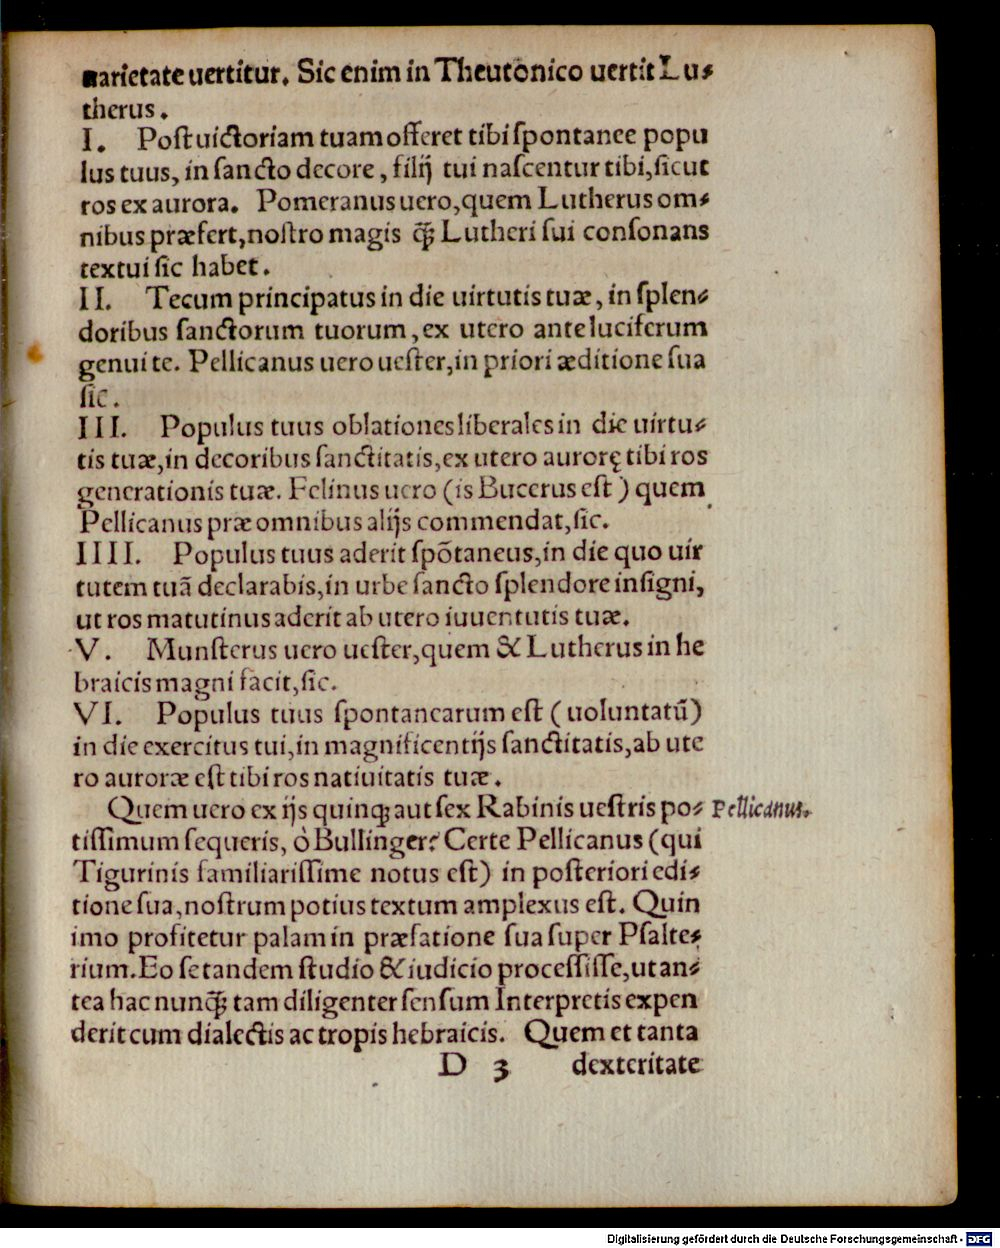 uarietate uertitur. Sic enim in Theutonico uertit Lu⸗
therus.
I. Post uictoriam tuam offeret tibi spontanee popu
lus tuus, in sancto decore, filij tui nascentur tibi, sicut
ros ex aurora. Pomeranus uero, quem Lutherus om⸗
nibus præfert, nostro magis q̃ꝫ Lutheri sui consonans
textui sic habet.
II. Tecum principatus in die uirtutis tuæ, in splen⸗
doribus sanctorum tuorum, ex utero ante luciferum
genui te. Pellicanus uero uester, in priori æditione sua
sic.
III. Populus tuus oblationes liberales in die uirtu⸗
tis tuæ, in decoribus sanctitatis, ex utero aurorę tibi ros
generationis tuæ. Felinus uero (is Bucerus est) quem
Pellicanus præ omnibus alijs commendat, sic.
IIII. Populus tuus aderit spõtaneus, in die quo uir
tutem tuã declarabis, in urbe sancto splendore insigni,
ut ros matutinus aderit ab utero iuuentutis tuæ.
V. Munsterus uero uester, quem & Lutherus in he
braicis magni facit, sic.
VI. Populus tuus spontanearum est (uoluntatũ)
in die exercitus tui, in magnificentijs sanctitatis, ab ute
ro auroræ est tibi ros natiuitatis tuæ.
Quem uero ex ijs quinqꝫ aut sex Rabinis uestris po⸗ Pellicanus.
tissimum sequeris, ò Bullinger? Certe Pellicanus (qui
Tigurinis familiarissime notus est) in posteriori edi⸗
tione sua, nostrum potius textum amplexus est. Quin
imo profitetur palam in præfatione sua super Psalte⸗
rium. Eo se tandem studio & iudicio processisse, ut an⸗
tea hac nunq̃ꝫ tam diligenter sensum Interpretis expen
derit cum dialectis ac tropis hebraicis. Quem et tanta
D 3 dexteritate
Digitalisierung gefördert durch die Deutsche Forschungsgemeinschaft - DFG